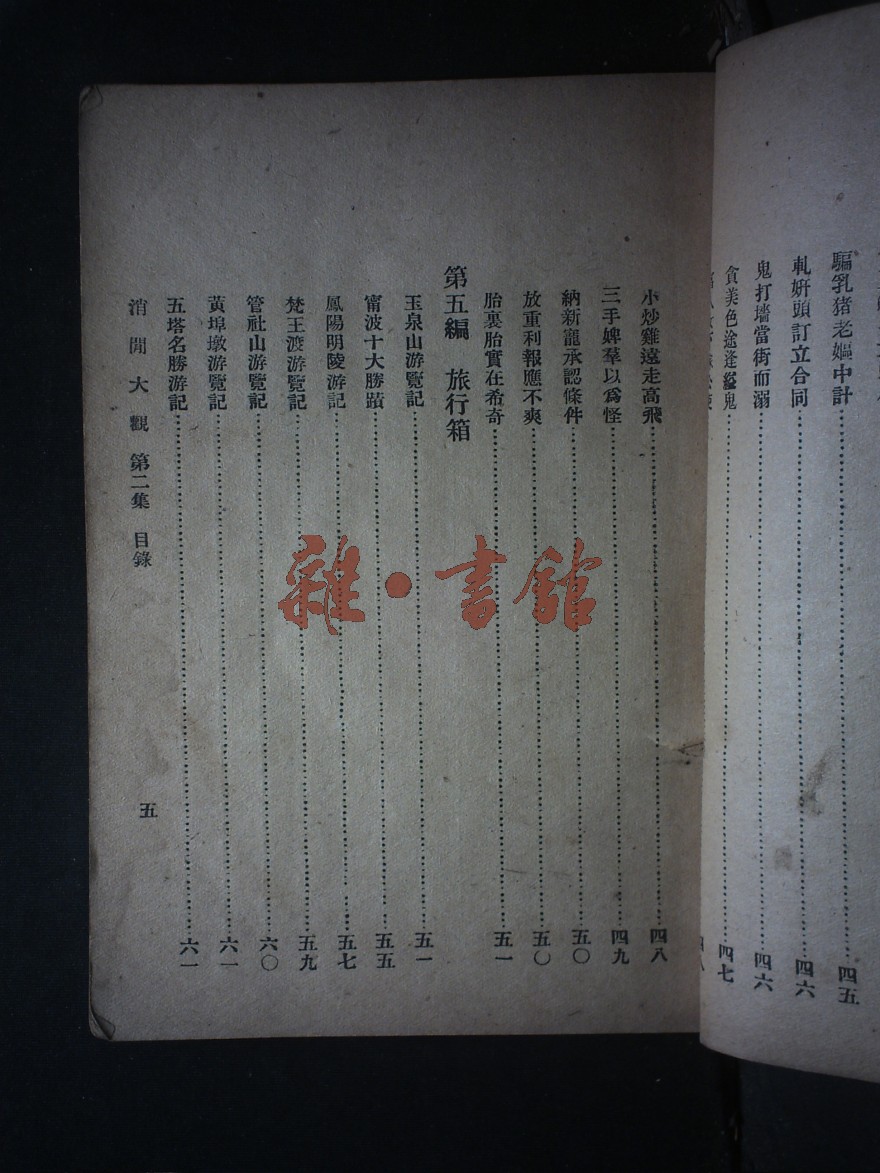 騙乳猪老嫗中計…………四五
軋姘頭訂立合同…………四六
鬼打墻當街而溺…………四六
貪美色途逢縊鬼…………四七
小炒雞遠走高飛…………四八
三手婢羣以爲怪…………四九
納新寵承認條件…………五〇
放重利報應不爽…………五〇
胎裏胎實在希奇…………五一
第五編 旅行箱
玉泉山游覽記…………五一
甯波十大勝蹟…………五五
鳳陽明陵游記…………五七
梵王渡游覽記…………五九
管社山游覽記…………六〇
黃埠墩游覽記…………六一
五塔名勝游記…………六一
消閒大觀 第二集 目錄 五
雜·書館